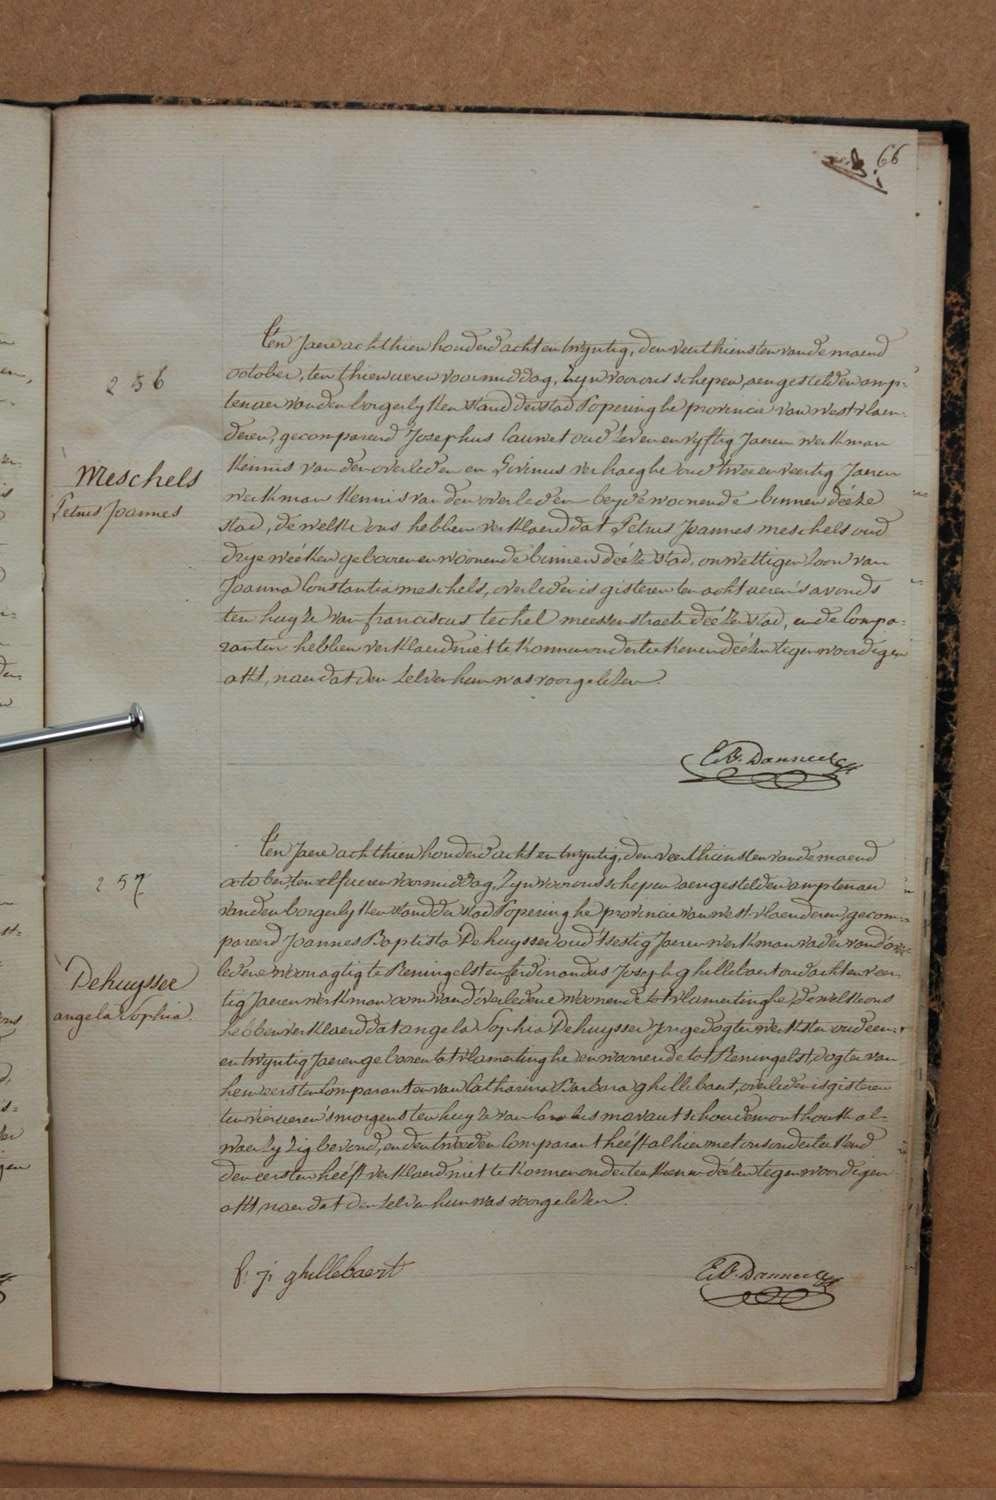 66
256
Meschels
Petrus Joannes
Ten Jaere achthien honderd acht en twyntig, den veerthiensten van de maend
october, ten thien ueren voormiddag, Zyn voor ons schepen, aengestelden amp-
tenaer van den borgerlyken stand der stad Poperinghe provincie van westvlaen-
deren, gecompareerd Josephus Cauwet oud seven en vyftig Jaeren werkman
Kennis van den overleden en Livinus verhaeghe oud twee en veertig Jaeren
werkman Kennis van den overleden beyde woenende binnen deéze
stad, de welke ons hebben verklaerd dat Petrus Joannes meschels oud
drye weéken geboren en woonende binnen deéze stad, onwettigen zoon van
Joanna Constantia meschels, overleden is gisteren ten acht ueren s'avonds
ten huyze van franciscus techel meessenstraete deézer stad, en de Compa-
ranten hebben verklaerd niet te konnen onderteekenen deézen tegenwoordigen
akt, naer dat den zelven hun was voorgelezen.
C. B. Danneel
257
Dehuysser
angela Sophia.
Ten Jaere achthien honderd acht en twyntig, den veerthiensten van de maend
october, ten elf ueren voormiddag, Zyn voor ons schepen aengestelden amptenaer
van den borgerlyken stand der stad Poperinghe provincie van westvlaenderen, gecom-
pareerd Joannes Baptista Dehuysser oud t'sestig Jaeren werkman vader van d'over-
ledene woonagtig te Reningelst en ferdinandus Joseph ghillebaert oud acht en veer-
tig Jaeren werkman oom van d'overledene woonende tot vlamertinghe, de welke ons
hebben verklaerd dat angela Sophia Dehuysser Jongedogter werkster oud een-
en twyntig Jaeren geboren te vlamertinghe en woonende tot Reningelst, dogter van
hem eersten Comparant en van Catharina Barbara ghillebaert, overleden is gisteren
ten vier ueren s'morgens ten huyze van Carolus maraut schoudemonthouck al-
waer zy zig bevond, en den tweéden Comparant heéft alhier met ons onderteekend
den eersten heéft verklaerd niet te konnen onderteekenen deézen tegenwoordigen
akt, naer dat den zelven hun was voorgelezen.
f: j: ghillebaert
C. B. Danneel